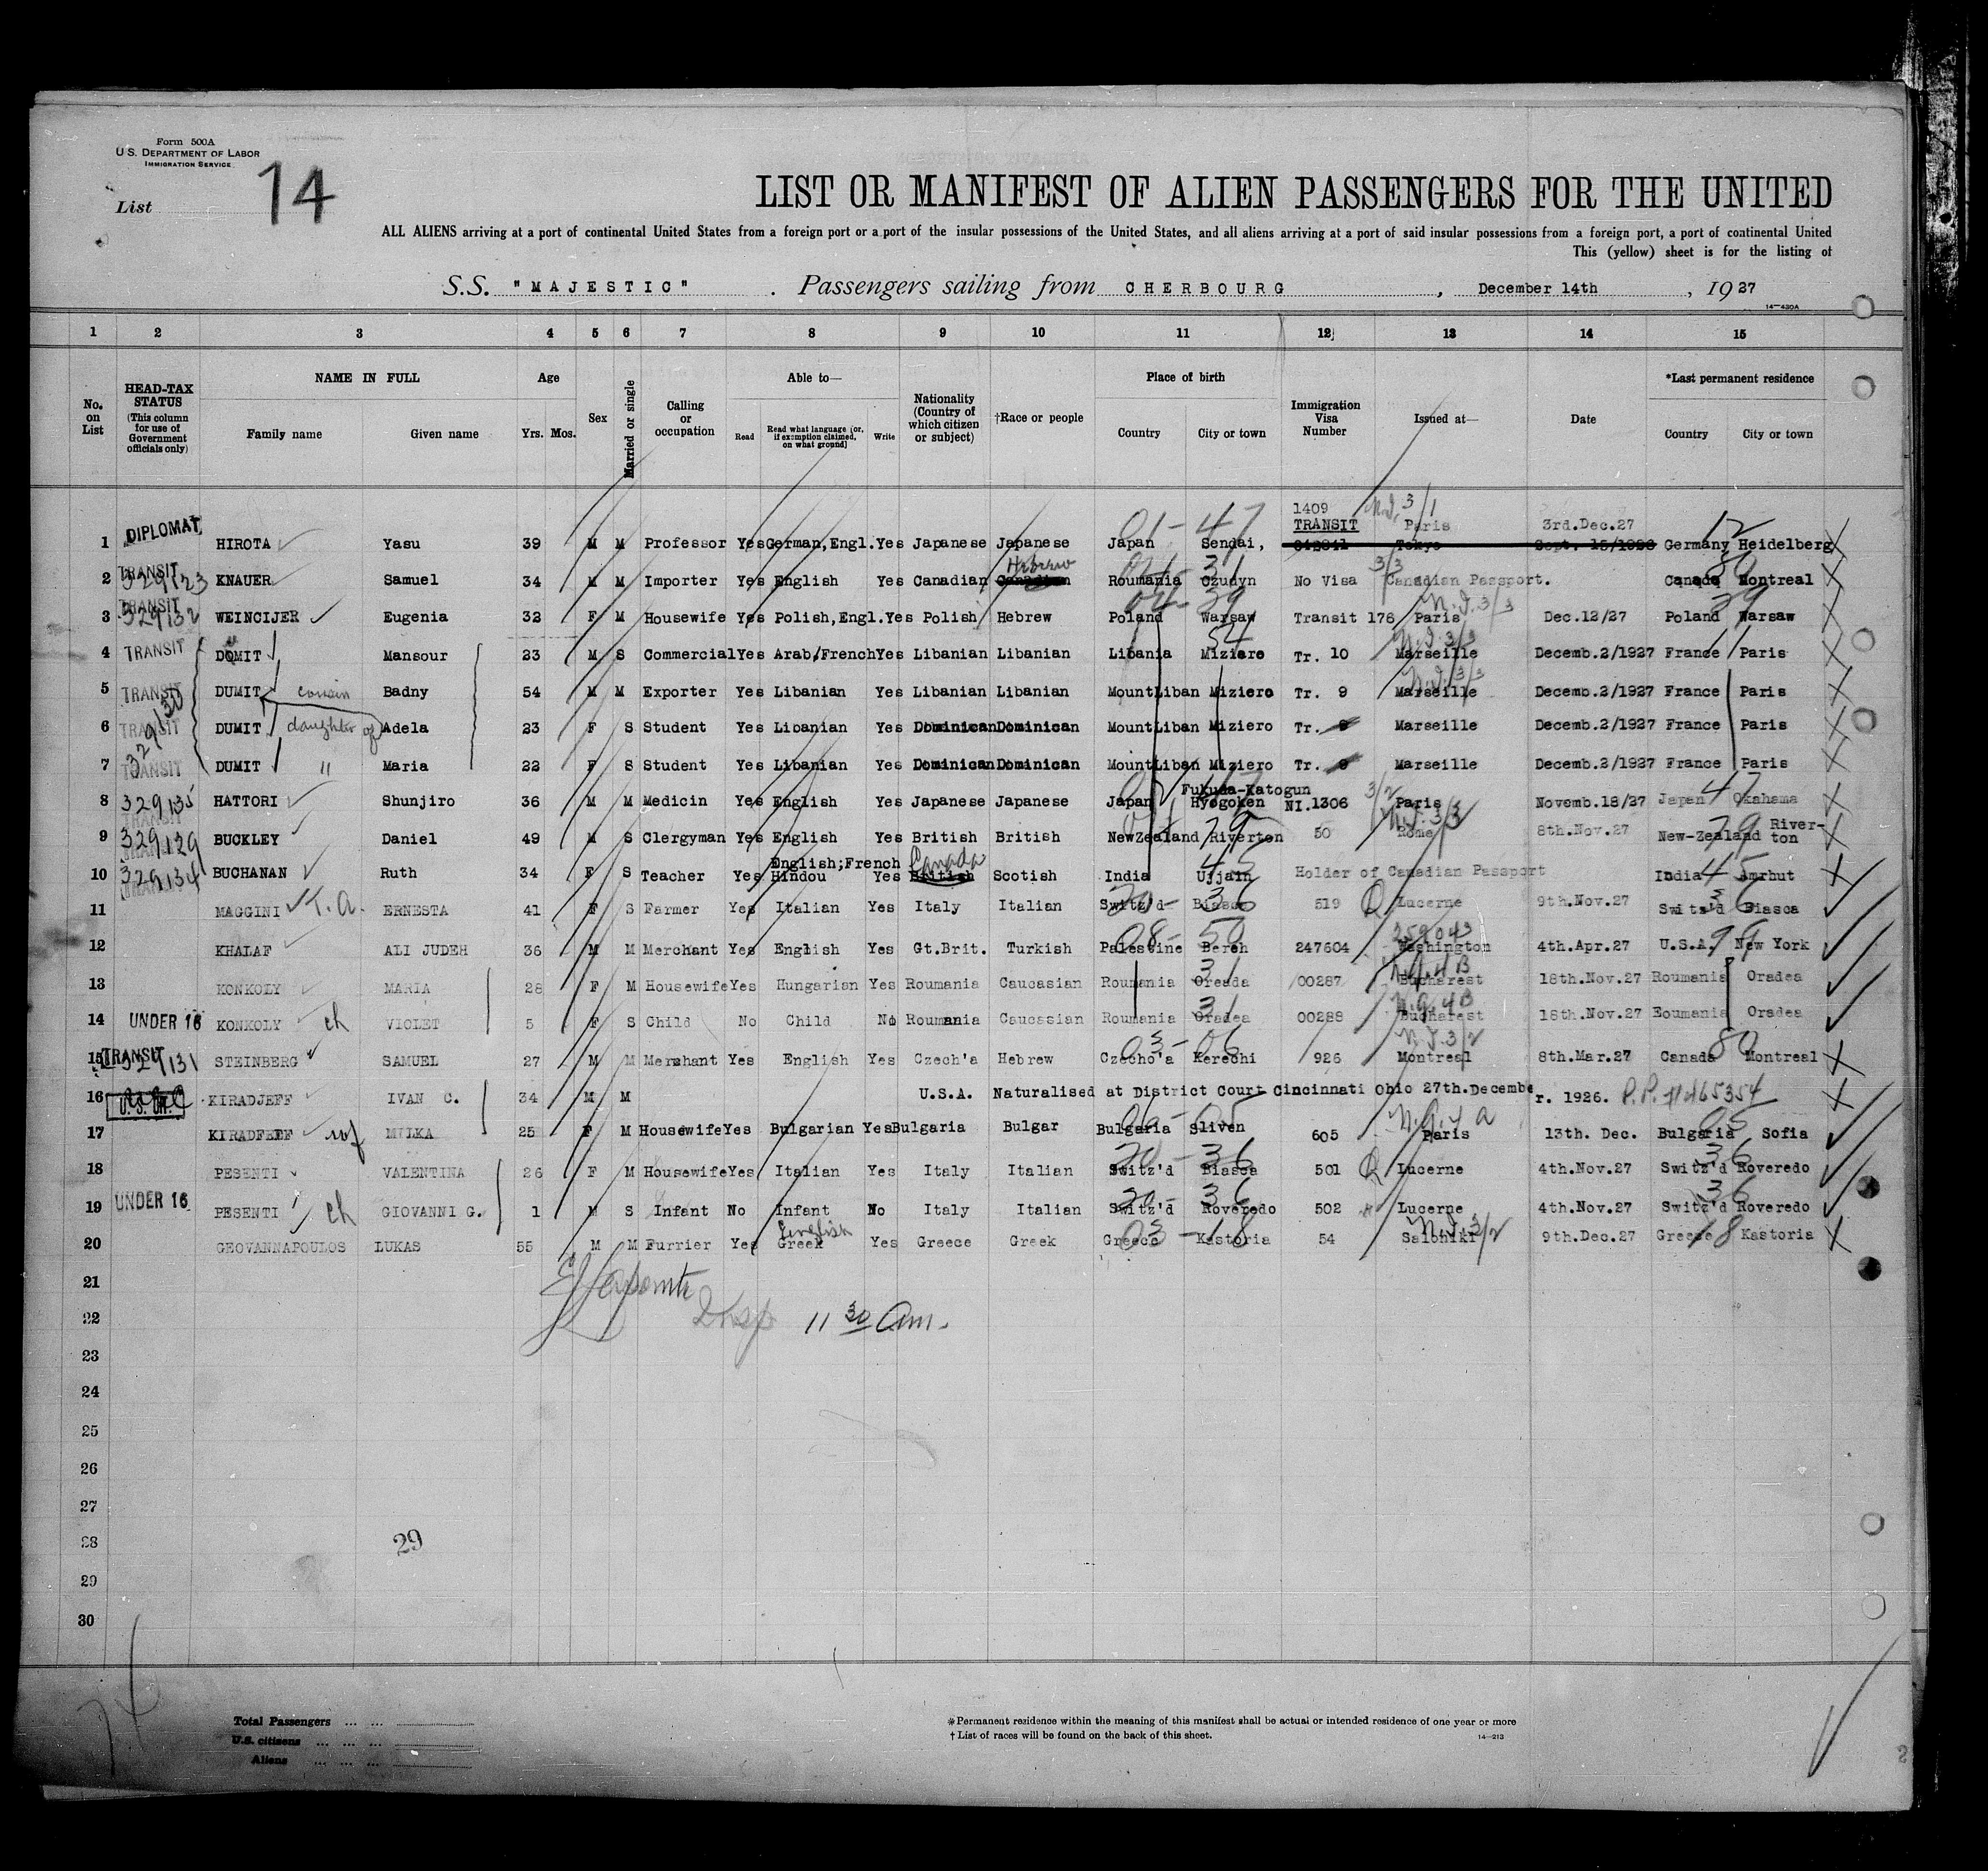 Form 500A
U.S. DEPARTMENT OF LABOR
IMMIGRATION SERVICE
List 14
LIST OR MANIFEST OF ALIEN PASSENGERS FOR THE UNITED
ALL ALIENS arriving at a port of continental United States from a foreign port or a port of the insular possessions of the United States, and all aliens arriving at a port of said insular possessions from a foreign port, a port of continental United
This (yellow) sheet is for the listing of
S.S. "MAJESTIC" . Passengers sailing from CHERBOURG , December 14th , 1927
14—430A
1 2 3 4 5 6 7 8 9 10 11 12 13 14 15
No. on List
HEAD-TAX STATUS (This column for use of Government officials only)
NAME IN FULL
Family name Given name
Age
Yrs. Mos.
Sex
Married or single
Calling or occupation
Able to—
Read Read what language (or, if exemption claimed, on what ground) Write
Nationality (Country of which citizen or subject)
†Race or people
Place of birth
Country City or town
Immigration Visa Number
Issued at—
Date
*Last permanent residence
Country City or town
1409 N.I. 3/1
01-47 TRANSIT Paris 3rd.Dec.27 12
1 DIPLOMAT HIROTA Yasu 39 M M Professor Yes German,Engl. Yes Japanese Japanese Japan Sendai, Tokyo Sept. 15/1926 Germany Heidelberg
Hebrew 31 3/3 80
2 TRANSIT 329123 KNAUER Samuel 34 M M Importer Yes English Yes Canadian Canadian Roumania Czudyn No Visa Canadian Passport. Canada Montreal
04-29 N.I.3/3 29
3 TRANSIT 329132 WEINCIJER Eugenia 32 F M Housewife Yes Polish,Engl. Yes Polish Hebrew Poland Warsaw Transit 176 Paris Dec.12/27 Poland Warsaw
54 N.I.3/3
4 TRANSIT DUMIT Mansour 23 M S Commercial Yes Arab,French Yes Libanian Libanian Libania Miziero Tr. 10 Marseille Decemb.2/1927 France Paris
N.I.3/3
5 TRANSIT DUMIT cousin Badny 54 M M Exporter Yes Libanian Yes Libanian Libanian Mount Liban Miziero Tr. 9 Marseille Decemb.2/1927 France Paris
329130
6 TRANSIT DUMIT daughter of Adela 23 F S Student Yes Libanian Yes Dominican Dominican Mount Liban Miziero Tr. Marseille Decemb.2/1927 France Paris
7 TRANSIT DUMIT " Maria 22 F S Student Yes Libanian Yes Dominican Dominican Mount Liban Miziero Tr. Marseille Decemb.2/1927 France Paris
Fukuda-Katogun 47 3/2 47
8 329135 HATTORI Shunjiro 36 M M Medicin Yes English Yes Japanese Japanese Japan Hyogoken NI.1306 Paris Novemb.18/27 Japan Okahama
TRANSIT 79 N.I.3/3 79
9 329129 BUCKLEY Daniel 49 M S Clergyman Yes English Yes British British NewZealand Riverton 50 Rome 8th.Nov.27 New-Zealand River-ton
TRANSIT English;French Canada 45 45
10 329134 BUCHANAN Ruth 34 F S Teacher Yes Hindou Yes British Scotish India Ujjain Holder of Canadian Passport India Amrhut
TRANSIT 20-36 36
11 MAGGINI T.A. ERNESTA 41 F S Farmer Yes Italian Yes Italy Italian Switz'd Biasca 519 Q Lucerne 9th.Nov.27 Switz'd Biasca
08-50 259043 99
12 KHALAF ALI JUDEH 36 M M Merchant Yes English Yes Gt.Brit. Turkish Palestine Bereh 247604 Washington 4th.Apr.27 U.S.A. New York
31 N.Q.4B
13 KONKOLY MARIA 28 F M Housewife Yes Hungarian Yes Roumania Caucasian Roumania Oreada 00287 Bucharest 18th.Nov.27 Roumania Oradea
31 N.Q.4B
14 UNDER 16 KONKOLY ch VIOLET 5 F S Child No Child No Roumania Caucasian Roumania Oradea 00288 Bucharest 18th.Nov.27 Roumania Oradea
03-06 N.I.3/2 80
15 TRANSIT 329131 STEINBERG SAMUEL 27 M M Merchant Yes English Yes Czech'a Hebrew Czecho'a Kerechi 926 Montreal 8th.Mar.27 Canada Montreal
16 U.S. CIT. KIRADJEFF IVAN C. 34 M M U.S.A. Naturalised at District Court Cincinnati Ohio 27th.December. 1926. P.P. #465354
06-05 N.Q.4 a 05
17 KIRADFEFF wf MILKA 25 F M Housewife Yes Bulgarian Yes Bulgaria Bulgar Bulgaria Sliven 605 Paris 13th. Dec. Bulgaria Sofia
20-36 36
18 PESENTI VALENTINA 26 F M Housewife Yes Italian Yes Italy Italian Switz'd Biasca 501 Q Lucerne 4th.Nov.27 Switz'd Roveredo
20-36 36
19 UNDER 16 PESENTI ch GIOVANNI G. 1 M S Infant No Infant No Italy Italian Switz'd Roveredo 502 " Lucerne 4th.Nov.27 Switz'd Roveredo
English 03-18 N.I.3/2 18
20 GEOVANNAPOULOS LUKAS 55 M M Furrier Yes Greek Yes Greece Greek Greece Kastoria 54 Saloniki 9th.Dec.27 Greece Kastoria
21
22 Insp 11 30 Am.
23
24
25
26
27
28 29
29
30
Total Passengers ... ...
U.S. citizens ... ... ...
Aliens ... ... ...
*Permanent residence within the meaning of this manifest shall be actual or intended residence of one year or more
†List of races will be found on the back of this sheet.
14—213
2